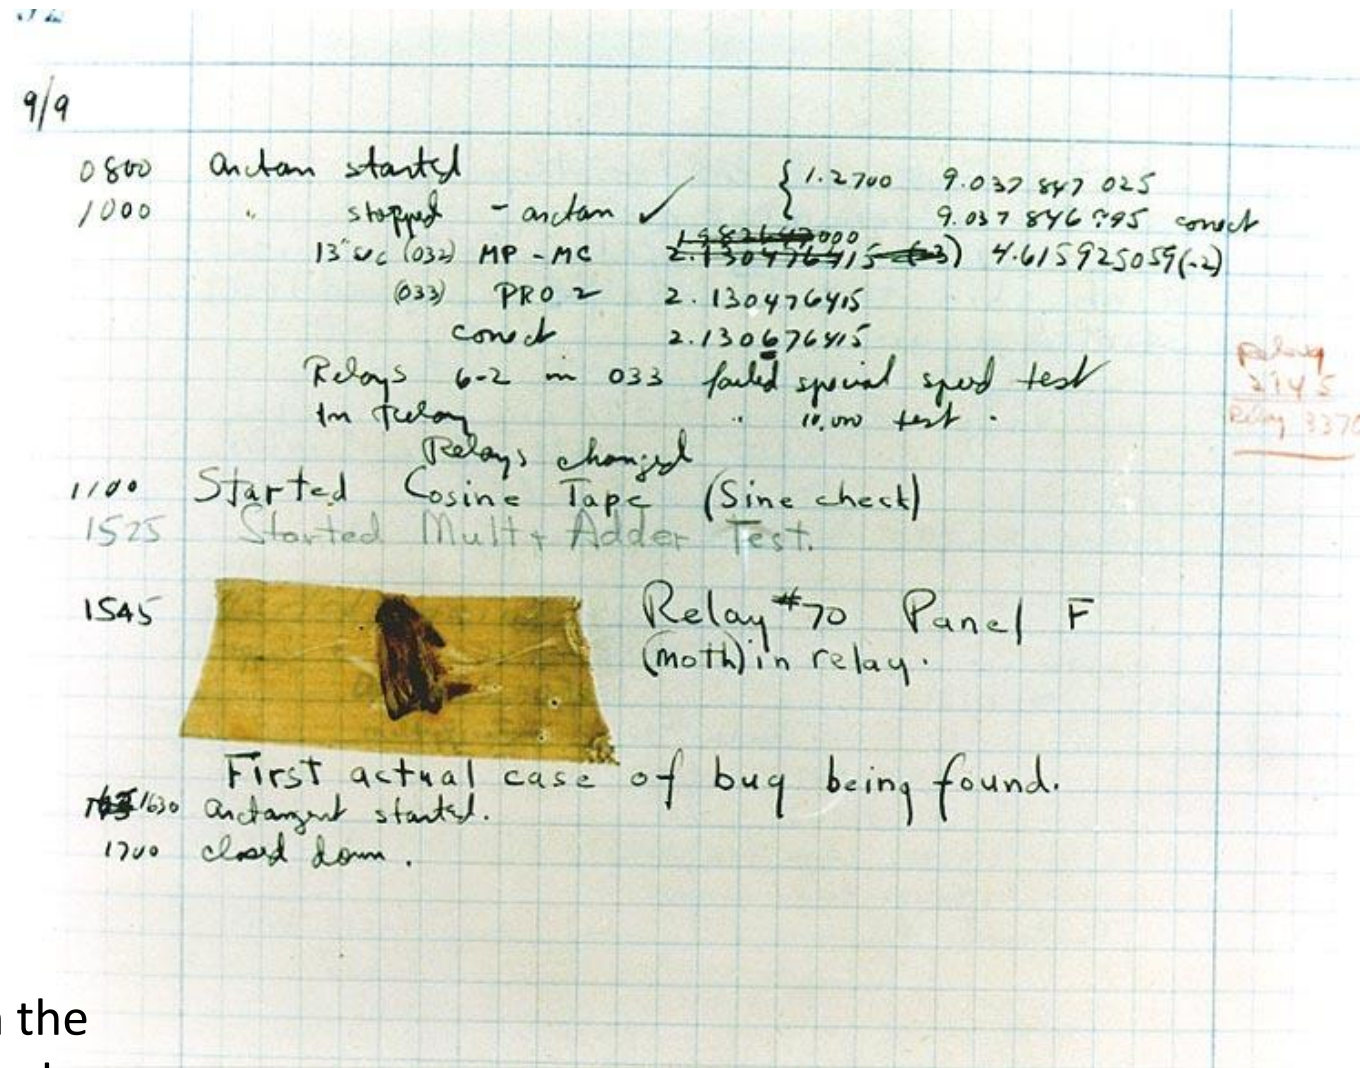 9/9
0800 Antan started { 1.2700 9.037 847 025
1000 " stopped - antan ✓ 9.037 846 995 correct
13"uc (032) MP - MC 2.130476415 (-3) 4.615925059(-2)
(033) PRO 2 2.130476415
correct 2.130676415
Relays 6-2 in 033 failed special speed test
In relay " 10,000 test .
Relays changed
Relay
2145
Relay 3370
1100 Started Cosine Tape (Sine check)
1525 Started Mult + Adder Test.
1545 Relay #70 Panel F
(moth) in relay.
First actual case of bug being found.
1630 Arctangent started.
1700 closed down.
the